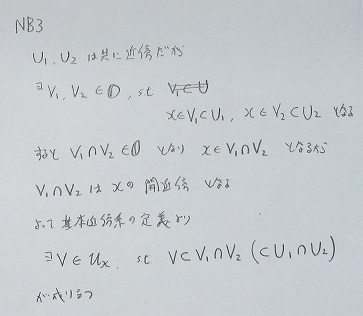 NB3
U₁, U₂ は共に近傍だから
∃V₁, V₂ ∈ 𝕆, st
x∈V₁⊂U₁, x∈V₂⊂U₂ となる
すると V₁∩V₂∈𝕆 となり x∈V₁∩V₂ となるから
V₁∩V₂ は xの開近傍 となる
よって基本近傍系の定義より
∃V∈𝒰ₓ, st V⊂V₁∩V₂ (⊂U₁∩U₂)
が成り立つ